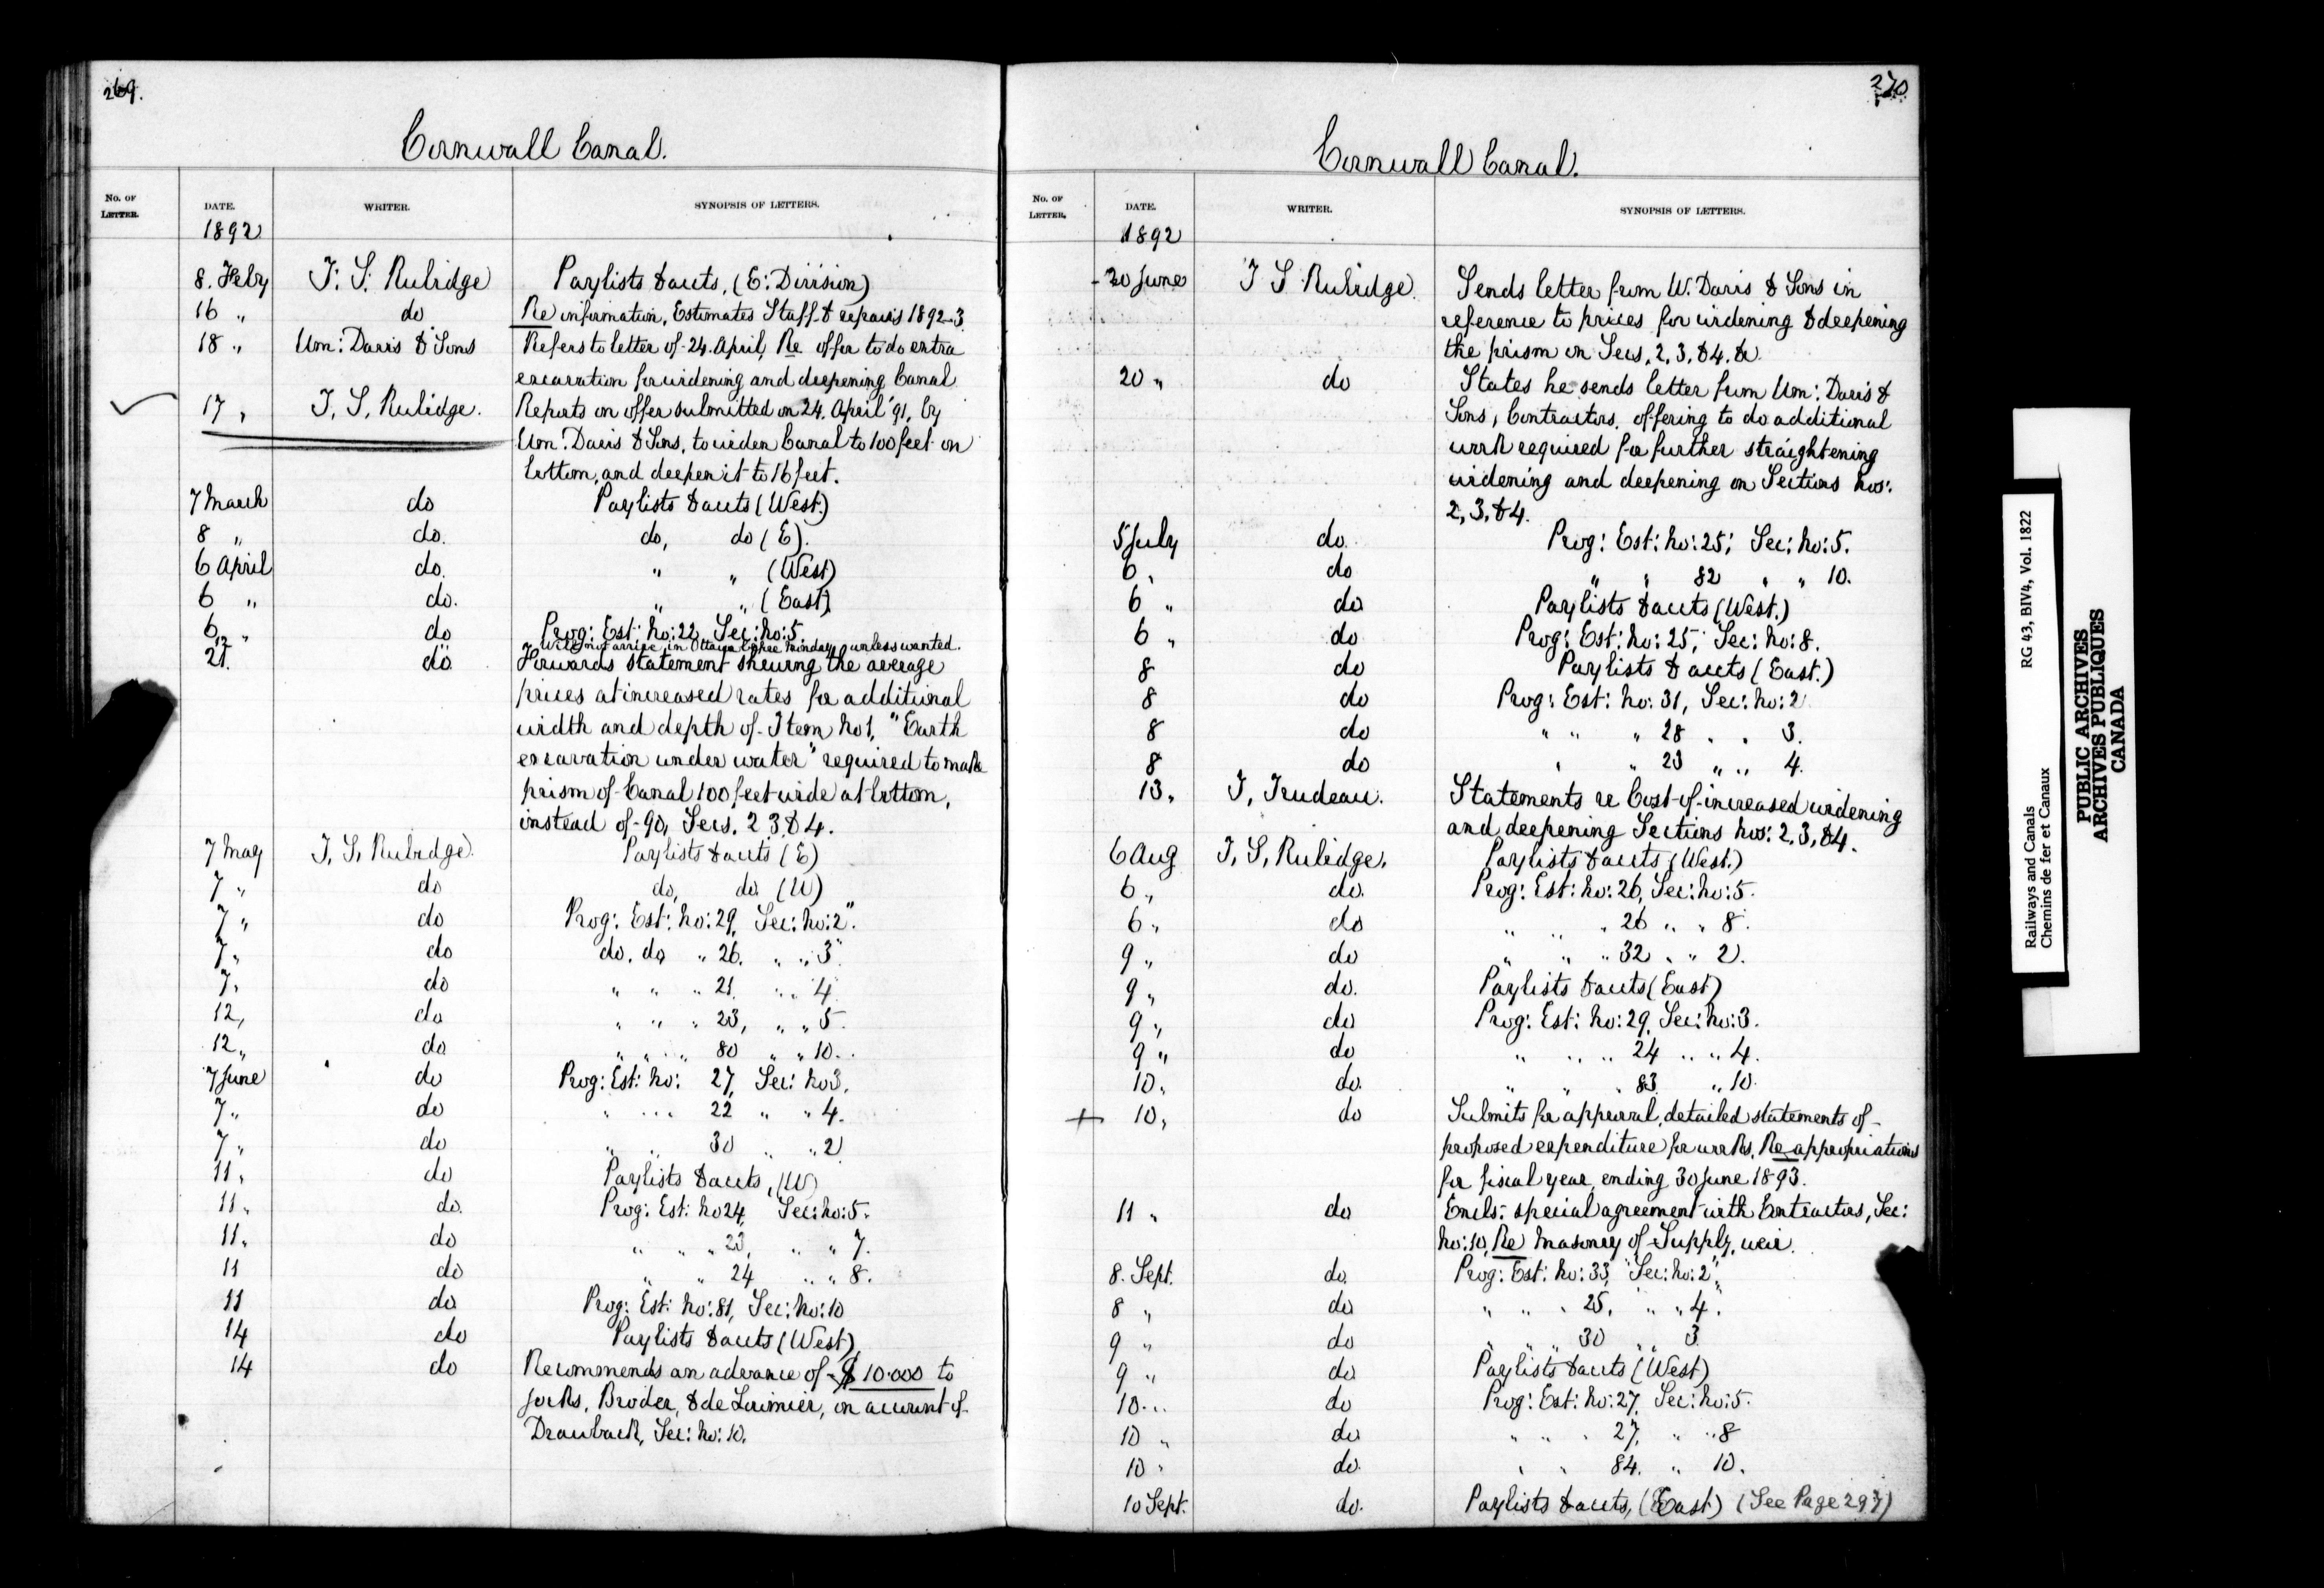 269.
Cornwall Canal.
No. of Letter. DATE. WRITER. SYNOPSIS OF LETTERS.
1892
8. Feby T. S. Rubidge Paylists & accts, (E: Division)
16 " do Re information, Estimates Staff & repairs 1892-3
18 " Wm: Davis & Sons Refers to letter of 24. April, Re offer to do extra
excavation for widening and deepening Canal
17 " T, S, Rubidge. Reports on offer submitted on 24. April '91, by
Wm: Davis & Sons, to widen Canal to 100 feet on
bottom, and deepen it to 16 feet.
7 March do Paylists & accts (West.)
8 " do. do, do (E).
6 April do. " " (West)
6 " do. " " (East)
6 " do Prog: Est: No: 22, Sec: No: 5
12 " Will not arrive in Ottawa before Monday unless wanted.
21. do. Forwards statement shewing the average
prices at increased rates for additional
width and depth of Item No 1, "Earth
excavation under water" required to make
prism of Canal 100 feet wide at bottom,
instead of 90, Secs. 2, 3, & 4.
7 May T, S, Rubidge. Paylists & accts (E)
7 " do do, do. (W)
7 " do Prog: Est: No: 29, Sec: No: 2".
7 " do do. do " 26. " " 3"
7 " do " " " 21. " " 4"
12, do " " " 23, " " 5.
12 " do " " " 80 " " 10.
7 June do Prog: Est: No: 27, Sec: No 3.
7 " do " " 22 " " 4.
7 " do " " 30 " " 2
11 " do Paylists & accts, (W)
11 " do. Prog: Est: No 24, Sec: No: 5.
11 " do " " " 23, " " 7.
11 do " " 24 " " 8.
11 do Prog: Est: No: 81, Sec: No: 10
14 do Paylists & accts (West)
14 do Recommends an advance of $10.000 to
Jocks, Broder, & de Lorimier, on account of
Drawback, Sec: No: 10.
270
Cornwall Canal.
No. of Letter. DATE. WRITER. SYNOPSIS OF LETTERS.
1892
20 June T S Rubidge. Sends letter from W. Davis & Sons in
reference to prices for widening & deepening
the prism on Secs, 2, 3, & 4. &c
20 " do States he sends letter from Wm: Davis &
Sons, Contractors, offering to do additional
work required for further straightening
widening and deepening on Sections Nos:
2, 3, & 4.
5 July do. Prog: Est: No: 25; Sec: No: 5.
6 " do " " 82 " " 10.
6 " do Paylists & accts (West.)
6 " do Prog: Est: No: 25; Sec: No: 8.
8 do Paylists & accts (East.)
8 do Prog: Est: No: 31, Sec: No: 2
8 do " " " 28 " " 3.
8 do " " 23 " " 4.
13 " T, Trudeau. Statements re Cost of increased widening
and deepening Sections Nos: 2, 3, & 4.
6 Aug T, S, Rubidge. Paylists & accts (West.)
6 " do. Prog: Est: No: 26, Sec: No: 5.
6 " do " " " 26 " " 8.
9 " do " " " 32 " " 2.
9 " do. Paylists & accts (East)
9 " do Prog: Est: No: 29, Sec: No: 3.
9 " do " " " 24 " " 4.
10 " do. " " " 83 " 10.
+ 10, do Submits for approval, detailed statements of
proposed expenditure for works, Re appropriations
for fiscal year, ending 30 June 1893.
11 " do Encls: special agreement with Contractors, Sec:
No: 10, Re Masonry of Supply weir.
8. Sept. do. Prog: Est: No: 33, "Sec: No: 2",
8 " do " " " 25, " " 4".
9 " do " " 30 " " 3
9 " do Paylists & accts (West)
10 " do Prog: Est: No: 27, Sec: No: 5.
10 " do " " " 27, " " 8
10 " do. " " 84. " 10.
10 Sept. do. Paylists & accts, (East) (See Page 297)
Railways and Canals RG 43, BIV4, Vol. 1822
Chemins de fer et Canaux
PUBLIC ARCHIVES
ARCHIVES PUBLIQUES
CANADA